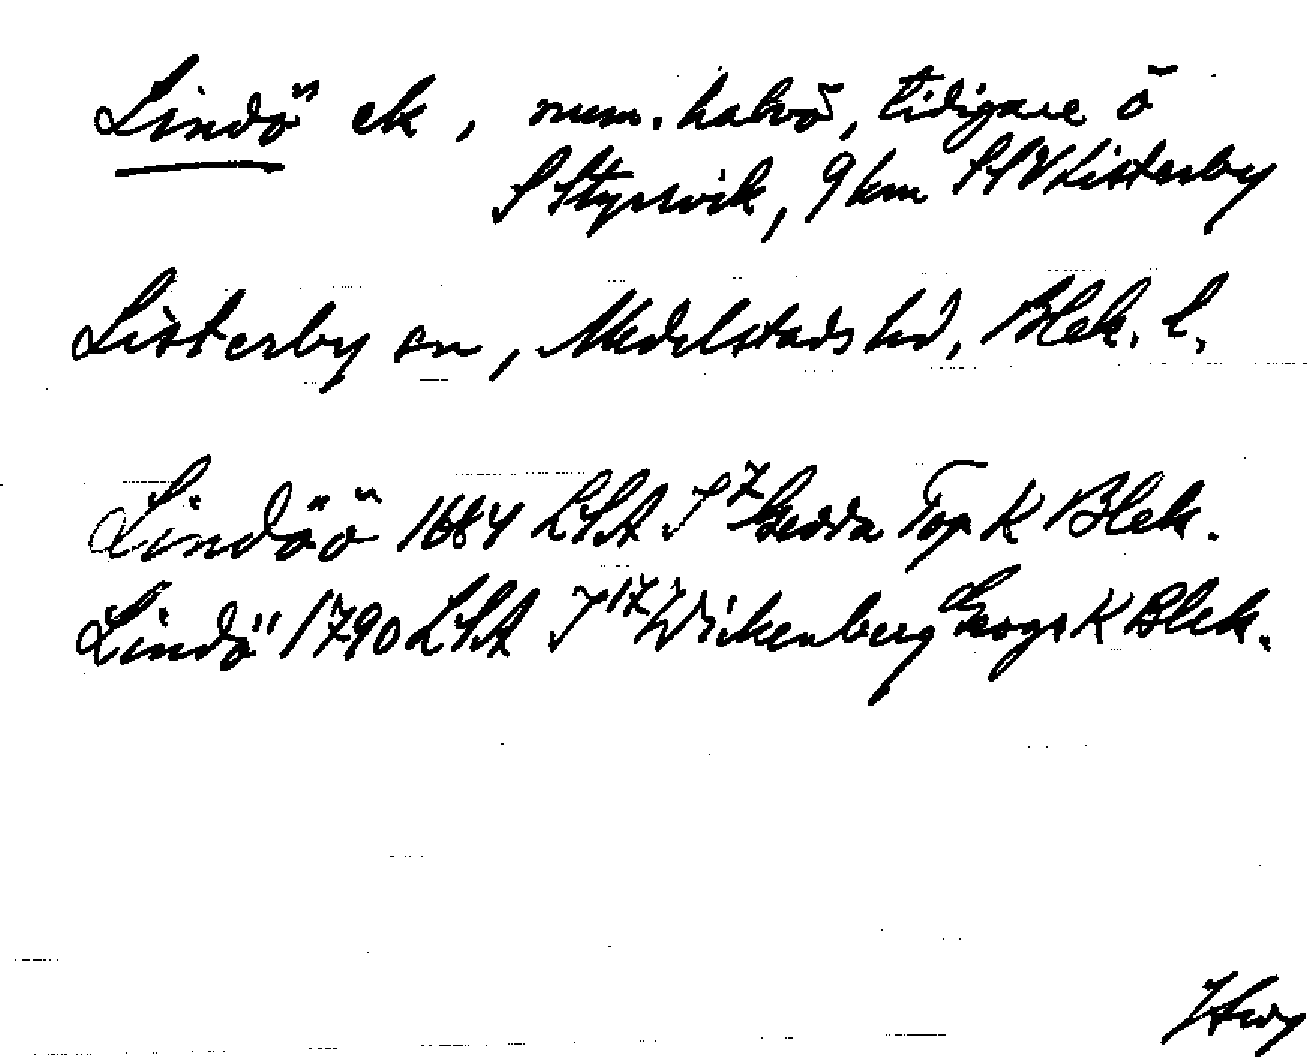 Lindö ek, num. halvö, tidigare ö
S Styrsvik, 9 km SSV Listerby
Listerby sn, Medelstads hd, Blek. l.
Lindöö 1684 LSA S⁷ Gedda Top K Blek.
Lindö 1790 LSA S¹⁷ Wickenberg Geogr K Blek.